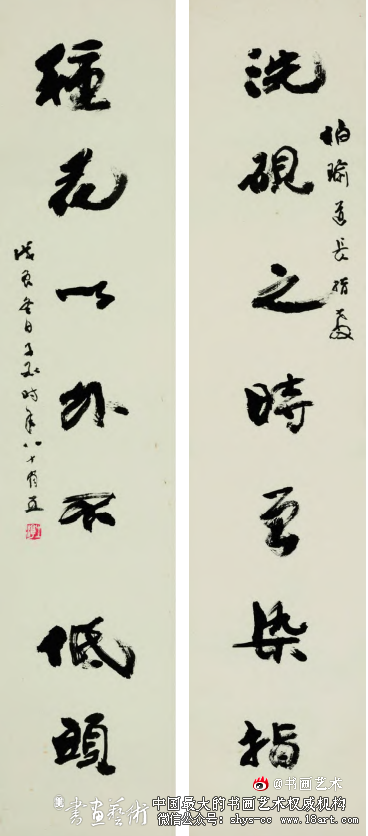 洗硯之時曾染指
柏瑜道長指教
種花以外不低頭
冬日子 時年八十有五
@书画艺术
書畫藝術
中国最大的书画艺术权威机构
微信公众号：shys-cc www.18art.com